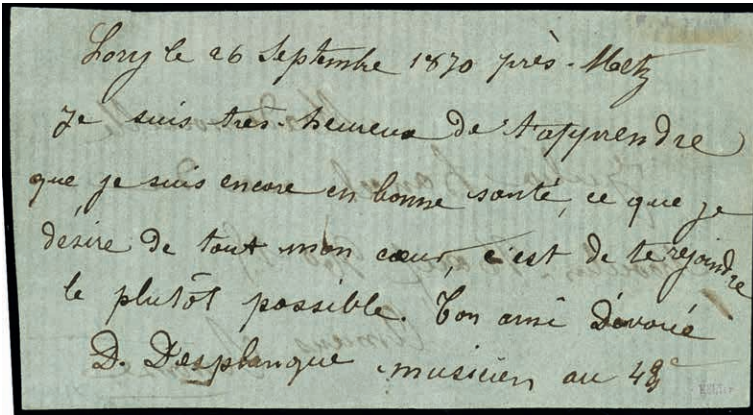 Lory le 26 Septembre 1870 près-Metz
Je suis très-heureux de t'apprendre
que je suis encore en bonne santé, ce que je
désire de tout mon cœur, c'est de te rejoindre
le plutôt possible. Ton ami Dévoué
D. Desplanque musicien au 43e